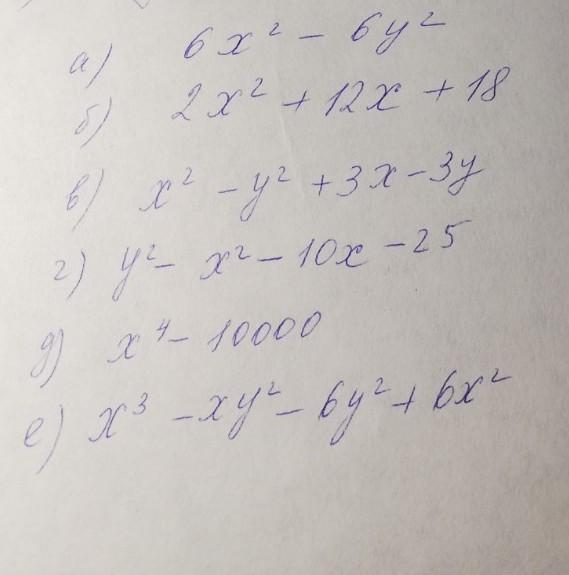 а) 6x² - 6y²
б) 2x² + 12x + 18
в) x² - y² + 3x - 3y
г) y² - x² - 10x - 25
д) x⁴ - 10000
е) x³ - xy² - 6y² + 6x²